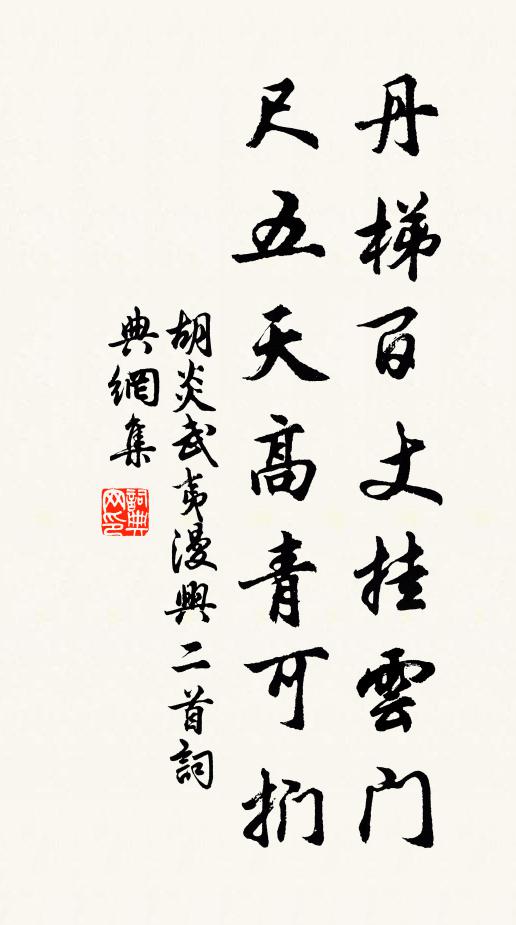 丹梯百丈挂雲门
尺五天高青可捫
胡炎武夷漫興二首詞
典網集
詞典网印